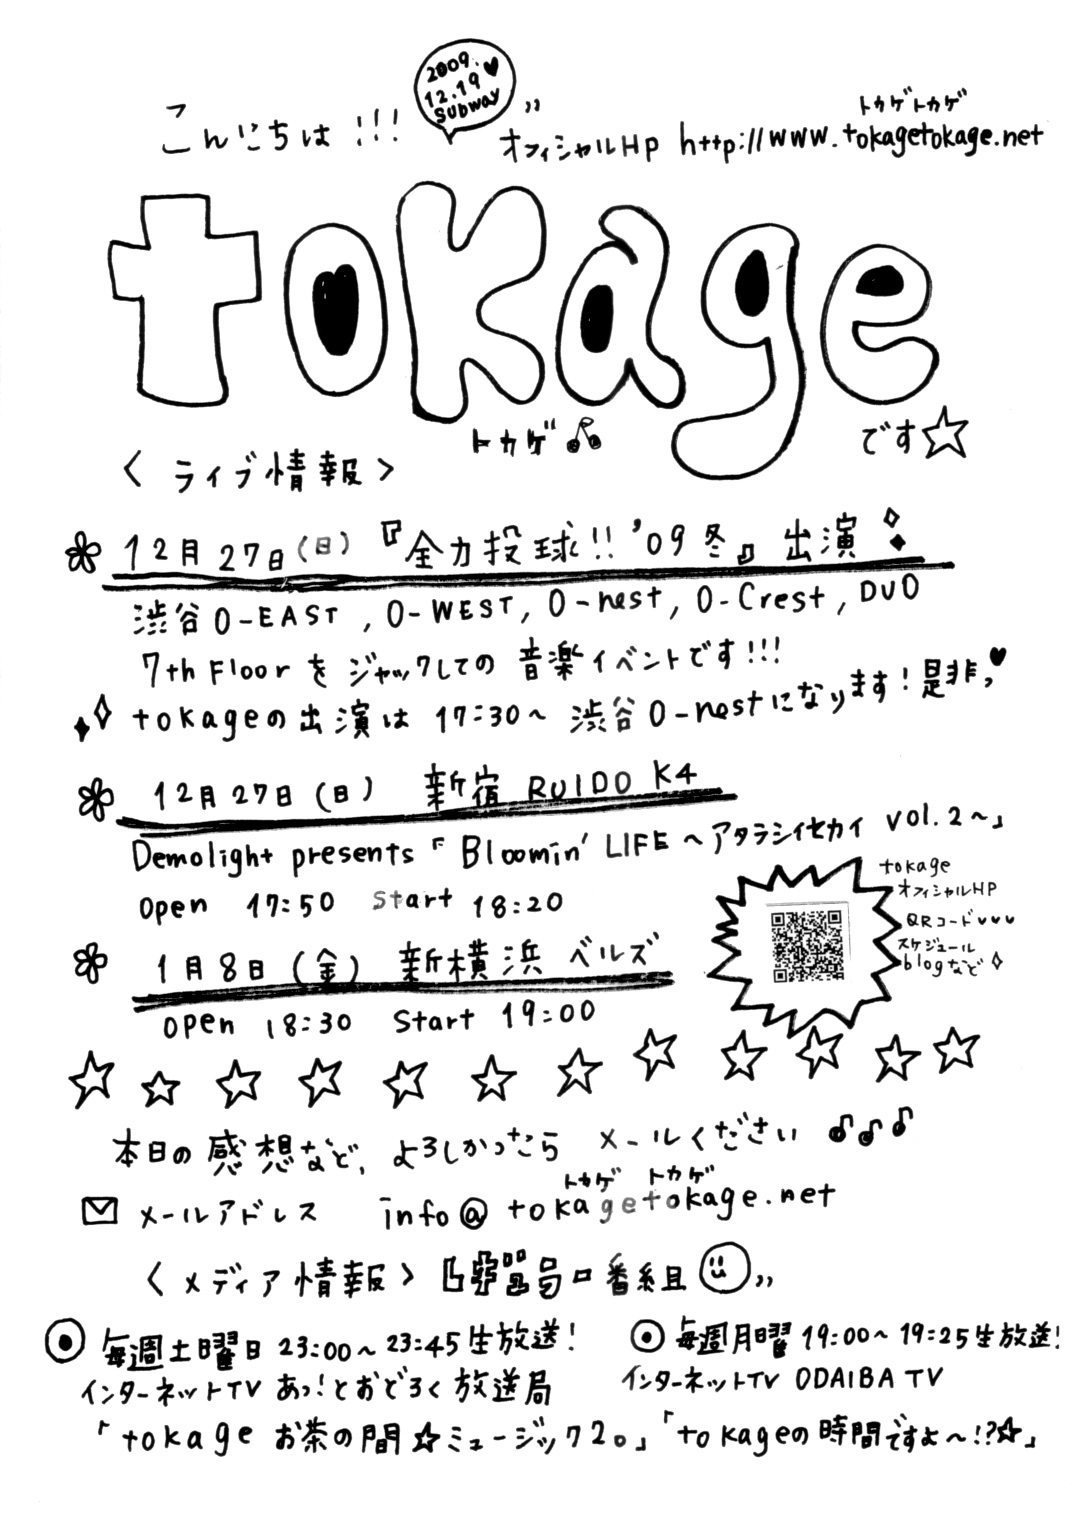 2009.
12.19♥
SUBWAY
こんにちは!!!
トカゲトカゲ
オフィシャルHP http://www.tokagetokage.net
tokage
トカゲ♫
です☆
〈ライブ情報〉
12月27日(日)『全力投球!!'09冬』出演
渋谷O-EAST, O-WEST, O-nest, O-Crest, DUO
7th Floorをジャックしての音楽イベントです!!!
tokageの出演は17:30〜渋谷O-nestになります!是非,♥
12月27日(日) 新宿 RUIDO K4
Demolight presents「Bloomin' LIFE〜アタラシイセカイ vol.2〜」
open 17:50 start 18:20
tokage
オフィシャルHP
QRコード♥♥♥
スケジュール
blogなど
1月8日(金) 新横浜 ベルズ
open 18:30 start 19:00
本日の感想など、よろしかったら メールください♪♪♪
トカゲ トカゲ
メールアドレス info@tokagetokage.net
〈メディア情報〉レギュラー番組
毎週土曜日 23:00〜23:45生放送!
インターネットTV あっ!とおどろく放送局
「tokage お茶の間☆ミュージック2。」
毎週月曜 19:00〜19:25生放送!
インターネットTV ODAIBA TV
「tokageの時間ですよ〜!?☆」